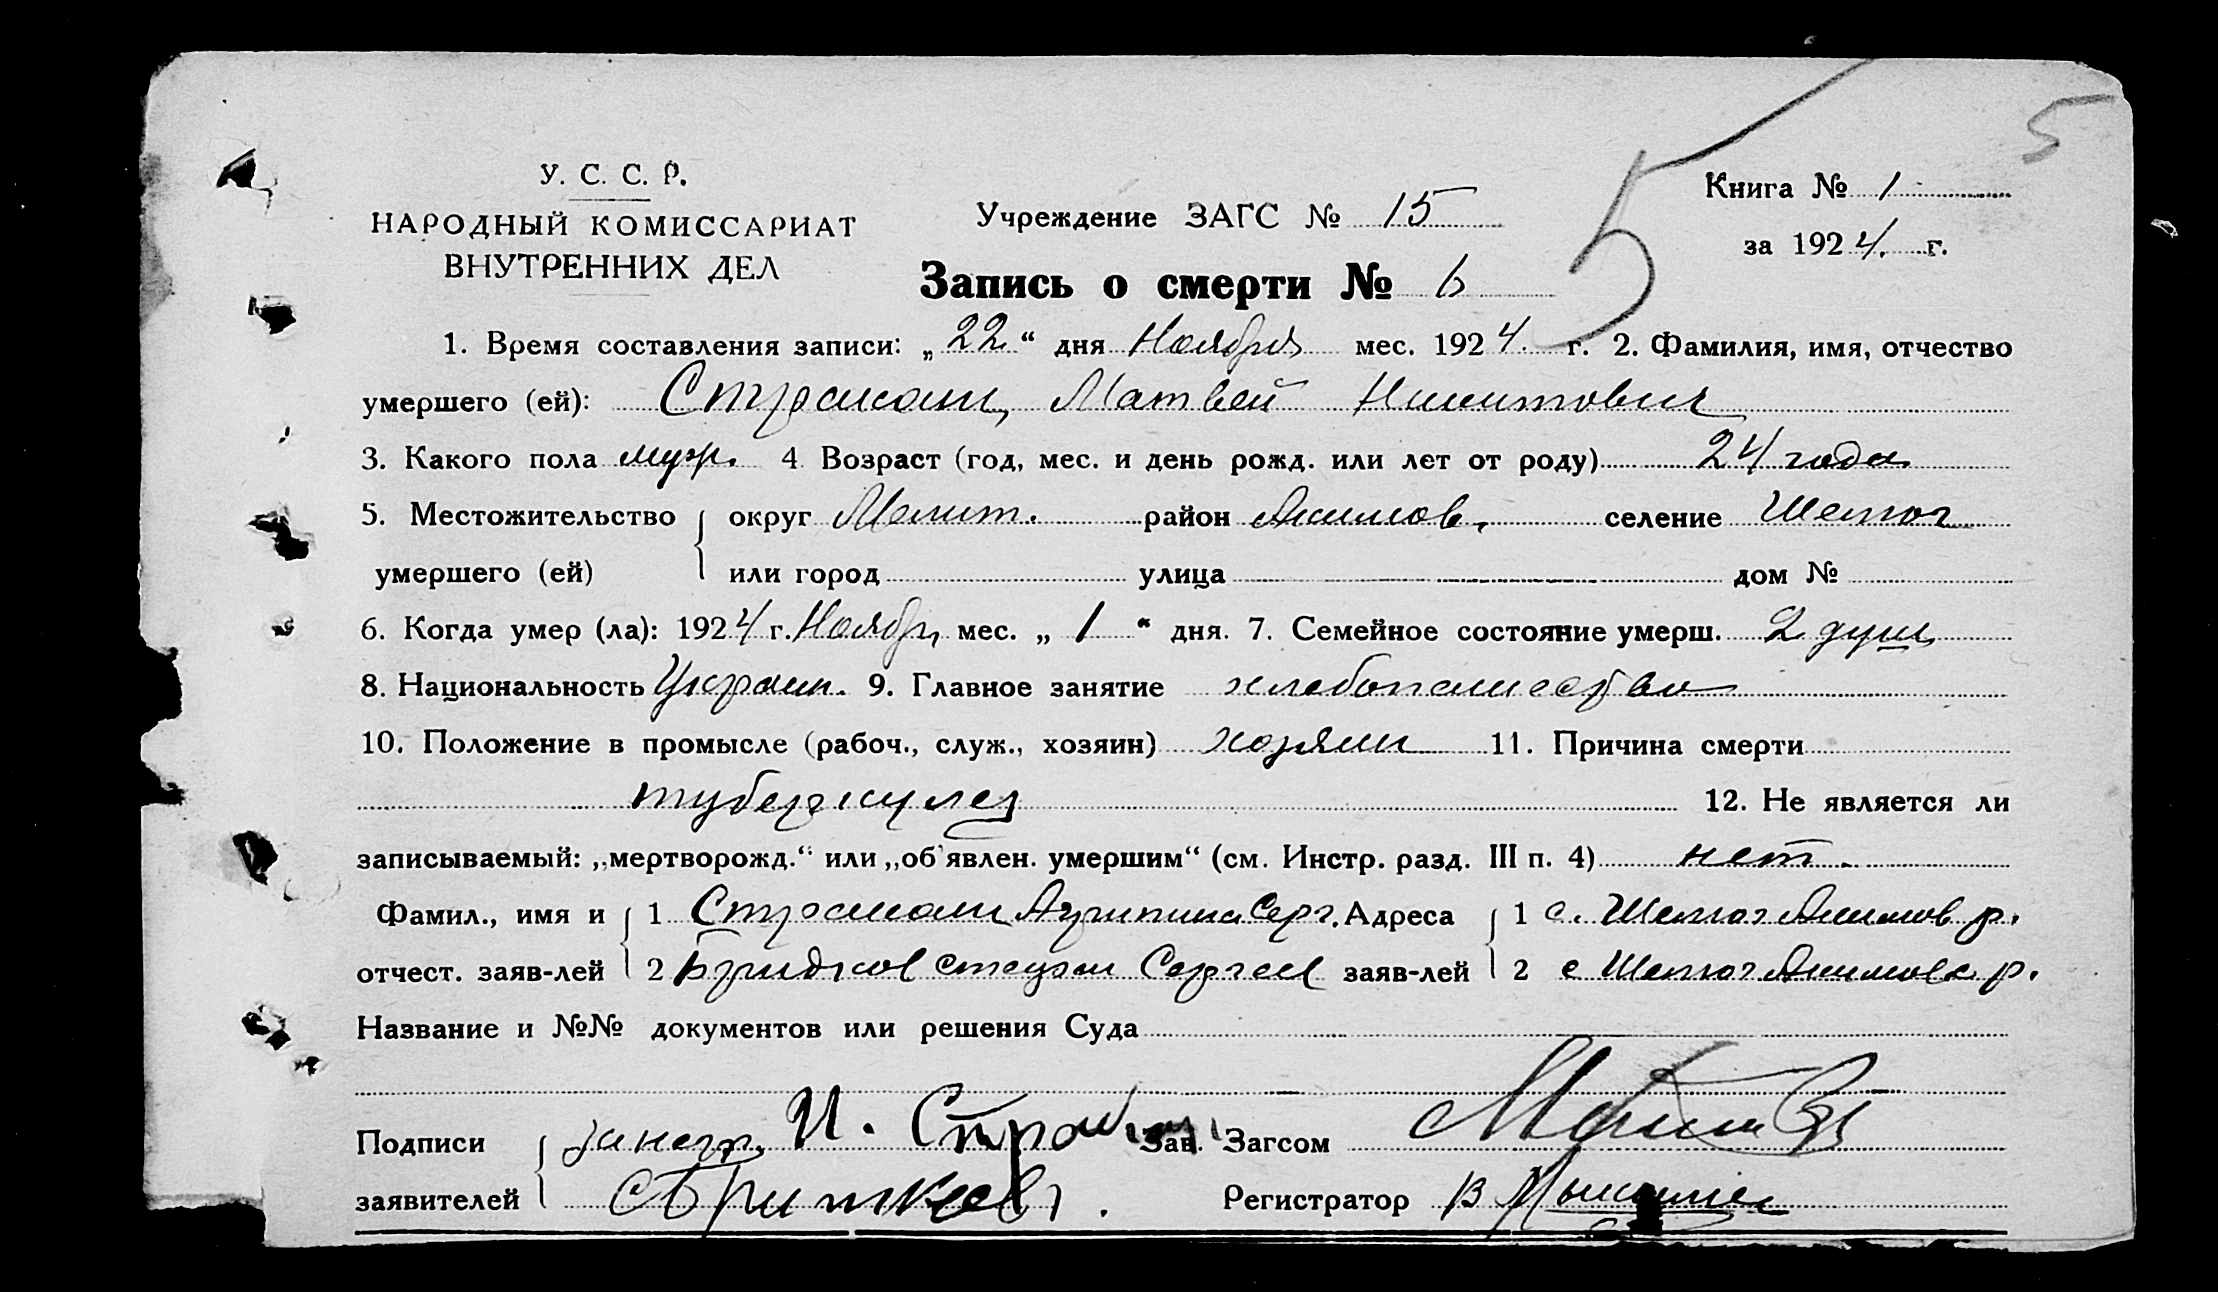 5
У. С. С. Р.
НАРОДНЫЙ КОМИССАРИАТ
ВНУТРЕННИХ ДЕЛ
Учреждение ЗАГС № 15
5
Книга № 1
за 1924 г.
Запись о смерти № 6
1. Время составления записи: „22“ дня Ноября мес. 1924 г. 2. Фамилия, имя, отчество
умершего (ей): Матвей Никитович
3. Какого пола муж. 4 Возраст (год, мес. и день рожд. или лет от роду) 24 года
5. Местожительство округ Мелит. район Акимов. селение
умершего (ей) или город улица дом №
6. Когда умер (ла): 1924 г. Ноябр. мес. „ 1 “ дня. 7. Семейное состояние умерш. 2 душ
8. Национальность Украин. 9. Главное занятие хлебопашество
10. Положение в промысле (рабоч., служ., хозяин) хозяин 11. Причина смерти
туберкулез 12. Не является ли
записываемый: „мертворожд.“ или „об'явлен. умершим“ (см. Инстр. разд. III п. 4) нет.
Фамил., имя и 1 Серг. Адреса 1 с. Акимов р.
отчест. заяв-лей 2 Сергеев заяв-лей 2 с Акимовс р.
Название и №№ документов или решения Суда
Подписи за негр. И. Зав. Загсом
заявителей Регистратор В